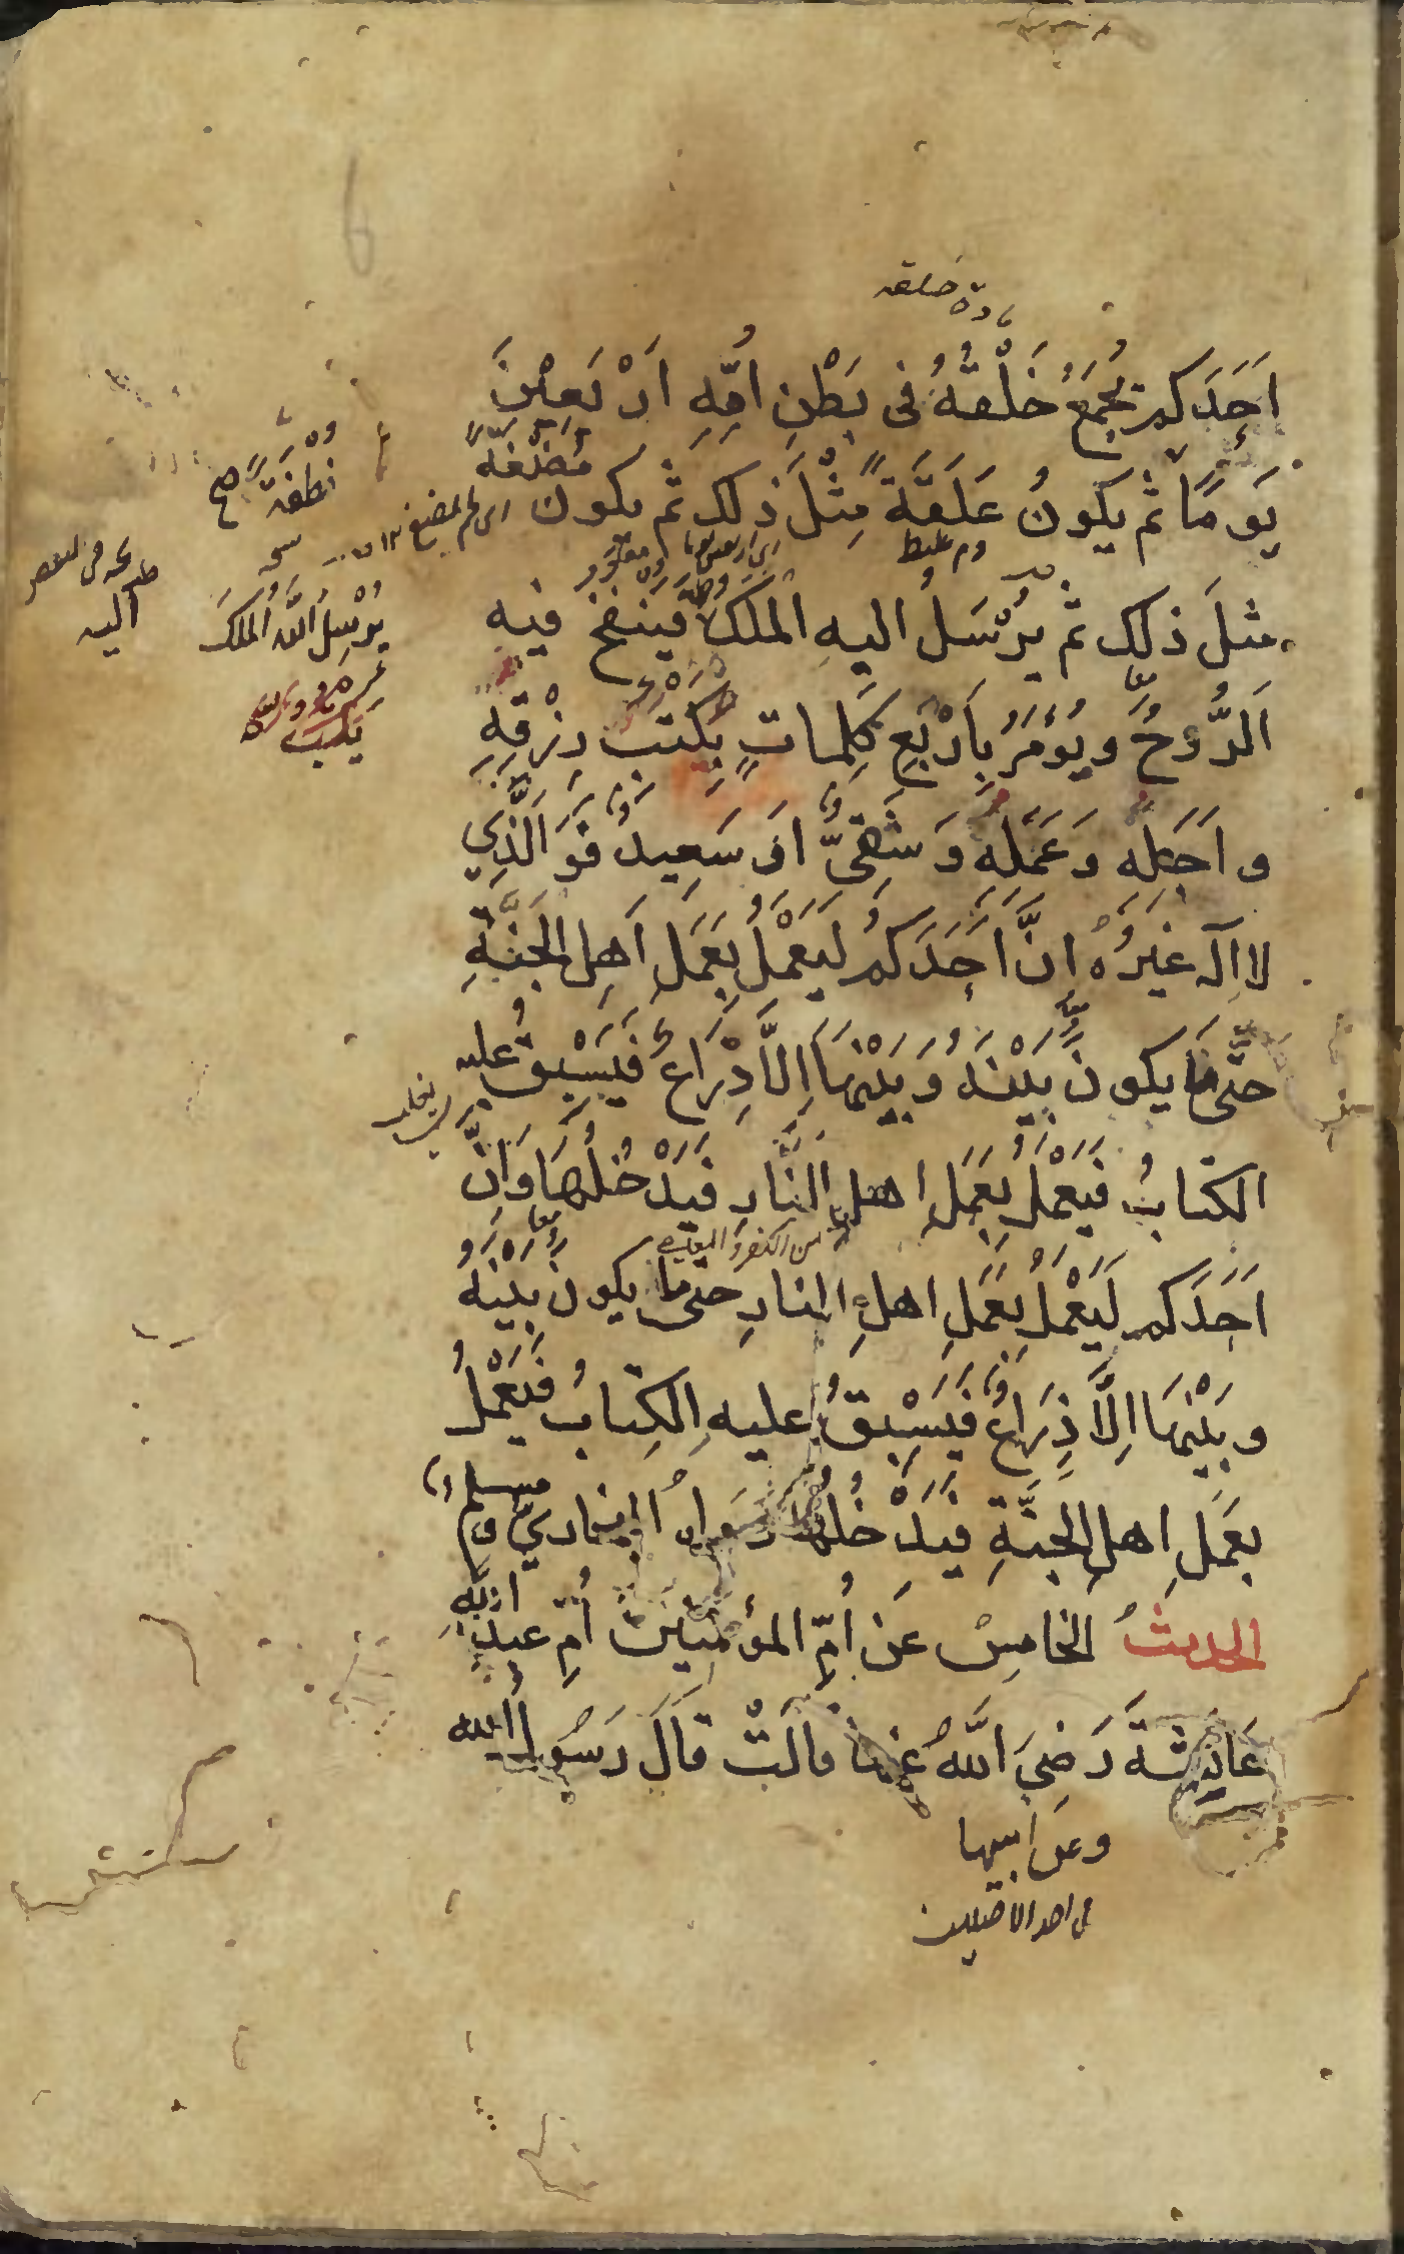 مادة خلقه
اَحَدَكم يُجْمَعُ خَلْقُهُ فى بَطْنِ اُمِّهِ اَرْبَعِيْنَ
يَوْمًا ثم يكونُ عَلَقَةً مِثْلَ ذلك ثم يكون
مُضْغَةً
نُطْفَةً صح
دم غليظ
مثلَ ذلك ثم يُرْسَلُ اليهِ المَلَكُ فينفخ فيه
يُرْسِلُ اللّهُ المَلَكَ
اليه
اَلرُّوحَُ ويُؤْمَرُ بِاَرْبَعِ كَلِماتٍ بِكَتْبِ رِزْقِهِ
يكتب
واَجَلِهِ وَعَمَلِهِ وَشَقِىٌّ اَوْ سَعِيدٌ فَوَ الَّذِي
لا اِلَه غَيرُهُ اِنَّ اَحَدَكُم لَيَعْمَلُ بِعَمَلِ اَهلِ الجَنَّةِ
حتَّى ما يكون بَيْنَهُ وَبَيْنَهَا اِلَّا ذِرَاعٌ فَيَسْبِقُ عليه
الكتابُ فَيَعْمَلُ بِعَمَلِ اهلِ النَّارِ فَيَدْخُلُهَا وَاِنَّ
من الكفر و
اَحَدَكم لَيَعْمَلُ بِعَمَلِ اهلِ النارِ حتى ما يكون بَيْنَهُ
وبَيْنَهَا اِلَّا ذِرَاعٌ فَيَسْبِقُ عليهِ الكِتابُ فَيَعْمَلُ
بِعَمَلِ اهلِ الجنَّةِ فَيَدْخُلُهَا رَوَاهُ البخاريُّ و
مسلم
الحديثُ الخامِسُ عَن اُمِّ المؤمِنِيْنَ اُمِّ عبدِ
اللّهِ
عَائِشَةَ رَضِيَ اللّهُ عَنها قالَتْ قَالَ رَسُولُ اللّه
وعن ابيها